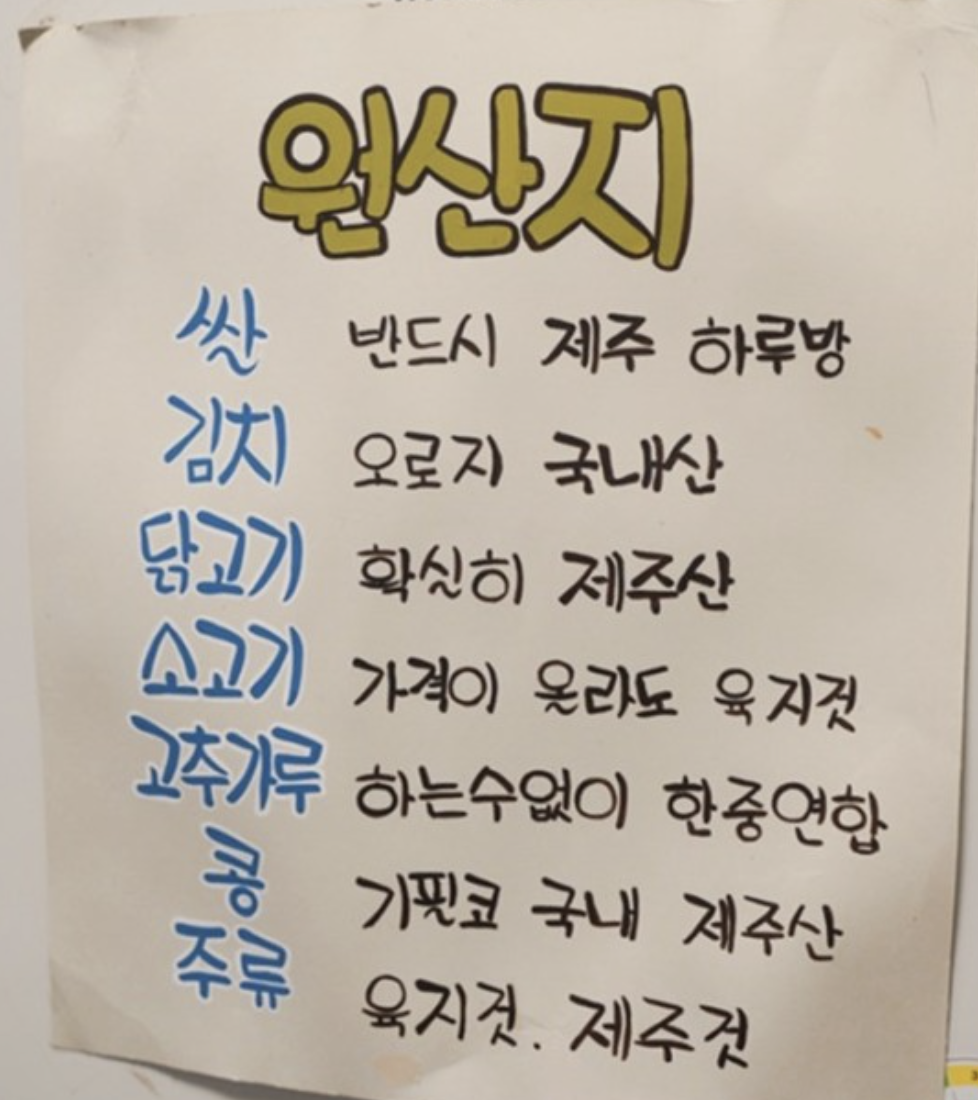 원산지
쌀 반드시 제주 하루방
김치 오로지 국내산
닭고기 확실히 제주산
소고기 가격이 올라도 육지것
고추가루 하는수없이 한중연합
콩 기필코 국내 제주산
주류 육지것. 제주것